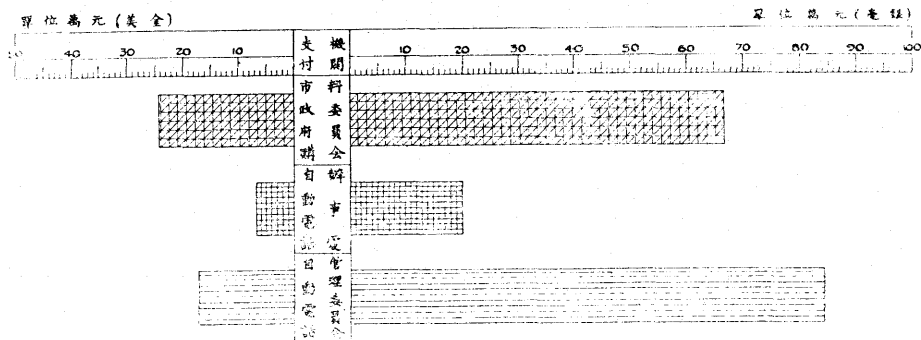 單位萬元(美金)
單位萬元(毫銀)
50 40 30 20 10
10 20 30 40 50 60 70 80 90 100
支付
機關
市政府購
料委員會
自動電話
辦事處
自動電話
管理委員會